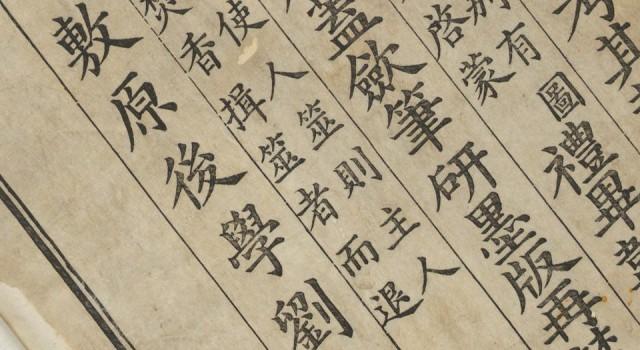 考其
有圖
啓蒙
禮畢
蓋斂筆研墨版再
使人筮則主人
香揖筮者而退
敷原後學劉